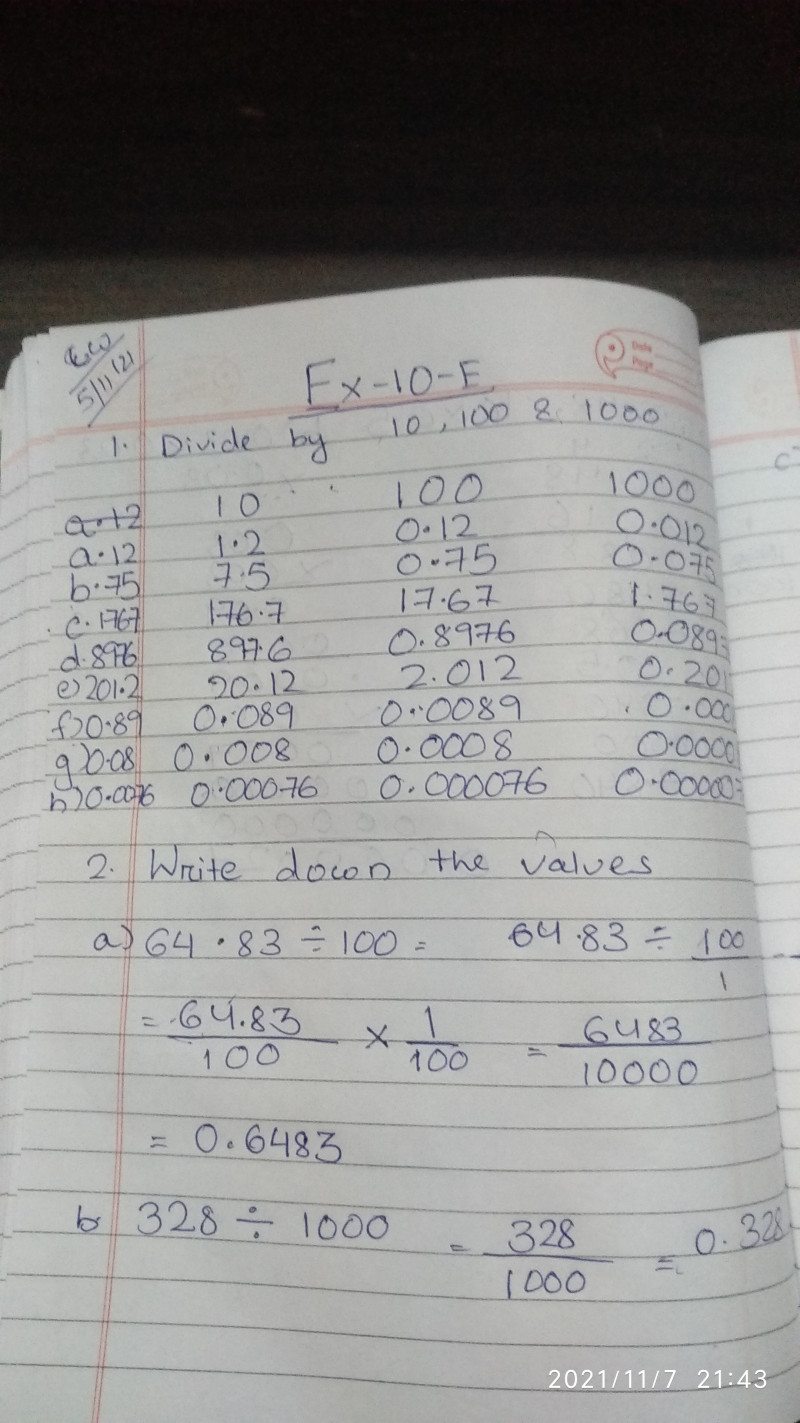 CW
5/11/21
Date
Page
Ex-10-E
1. Divide by 10, 100 & 1000
10 100 1000
a.12
a.12 1.2 0.12 0.012
b.75 7.5 0.75 0.075
c.1767 176.7 17.67 1.767
d.8976 897.6 0.8976 0.089
e) 201.2 20.12 2.012 0.201
f) 0.89 0.089 0.0089 0.000
g) 0.08 0.008 0.0008 0.0000
h) 0.0076 0.00076 0.000076 0.000007
2. Write down the values
a) 64.83 ÷ 100 = 64.83 ÷ 100/1
= 64.83/100 × 1/100 = 6483/10000
= 0.6483
b 328 ÷ 1000 = 328/1000 = 0.328
2021/11/7 21:43